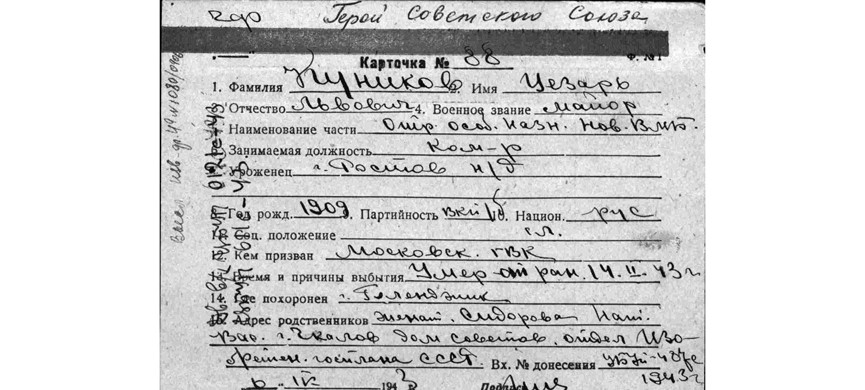 гдр Герой Советского Союза
Ф. №1
Карточка № 88
1. Фамилия Куников 2. Имя Цезарь
Отчество Львович 4. Военное звание майор
Наименование части Отр. особ. назн. Нов. В.М.Б.
Занимаемая должность Ком-р
Уроженец г. Ростов н/д
8. Год рожд. 1909 9. Партийность ВКП/б 10. Национ. рус
11. Соц. положение сл.
12. Кем призван Московск. ГВК
13. Время и причины выбытия Умер от ран. 14.II.43г
14. Где похоронен г. Геленджик
15. Адрес родственников женат. Сидорова Нат.
Вас. г. Чкалов дом советов, отдел Изо-
бретен. госплана СССР Вх. № донесения
6 IV 1943 г. 1943г